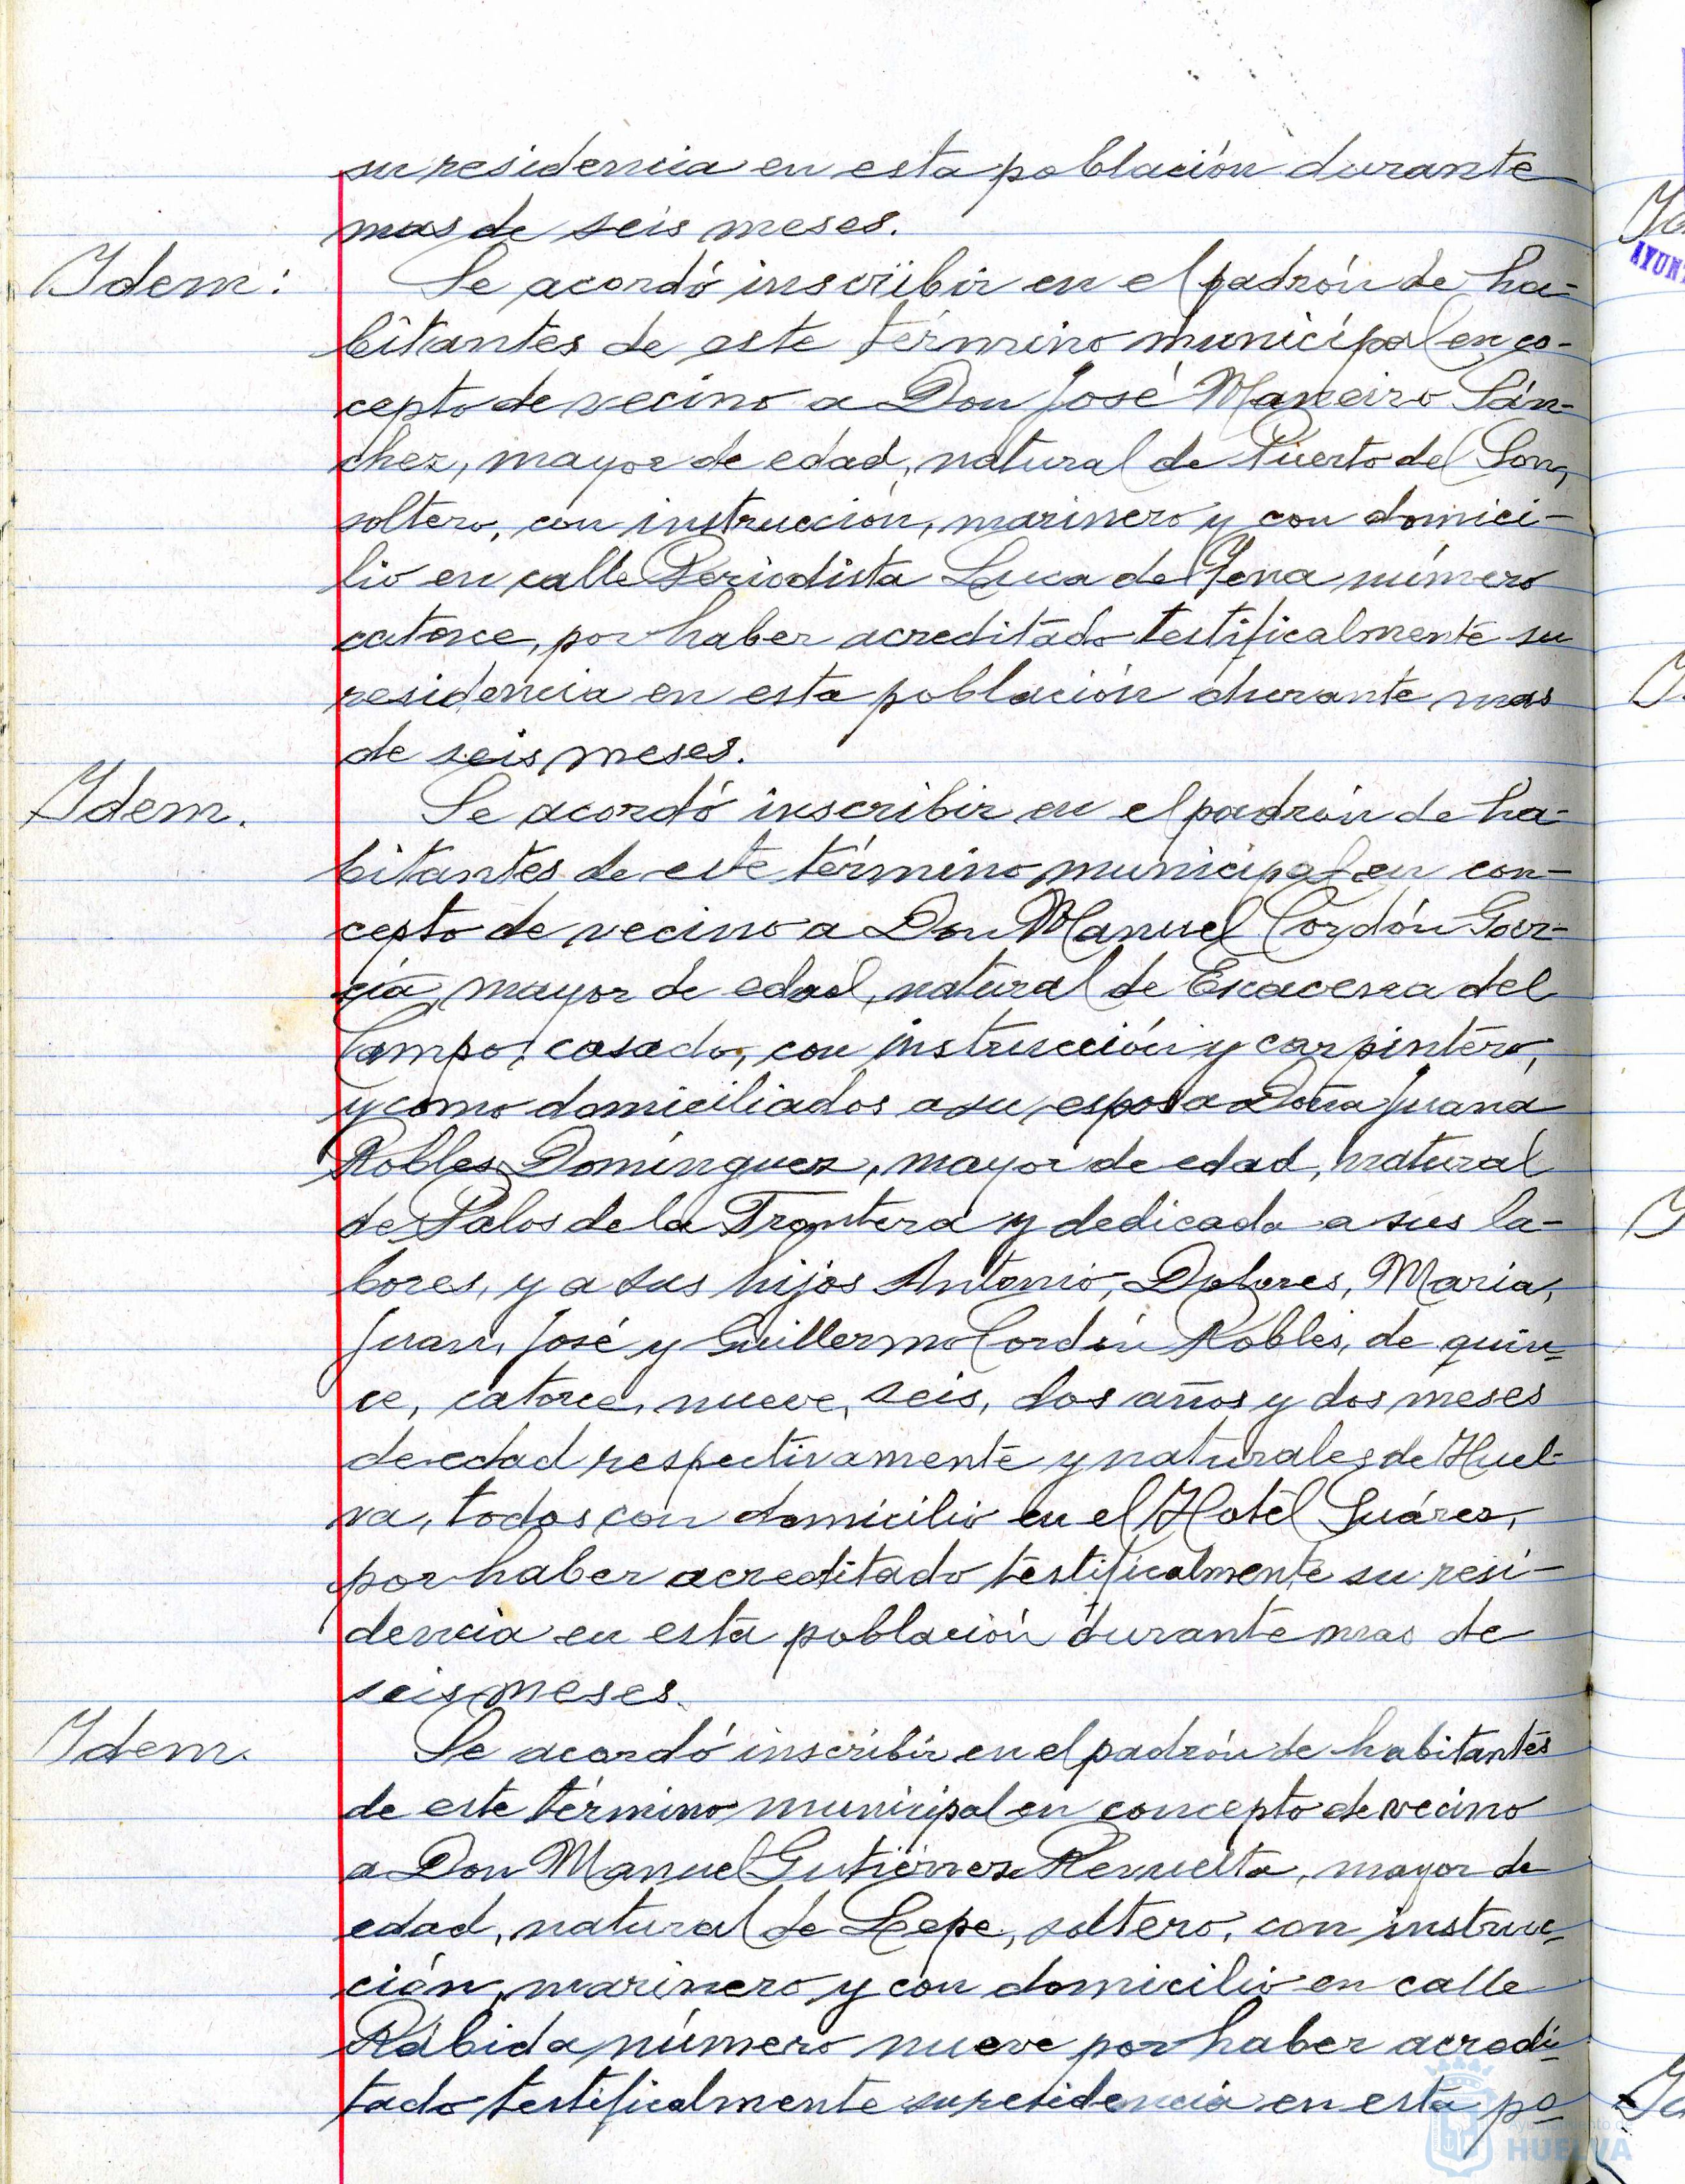 su residencia en esta población durante
mas de seis meses.
Idem:
Se acordó inscribir en el padrón de ha-
bitantes de este término municipal en co-
cepto de vecino a Don José Maneiro Sán-
chez, mayor de edad, natural de Puerto del Son,
soltero, con instrucción, marinero y con domici-
lio en calle Periodista Luca de Tena número
catorce, por haber acreditado testificalmente su
residencia en esta población durante mas
de seis meses.
Idem.
Se acordó inscribir en el padrón de ha-
bitantes de este término municipal en con-
cepto de vecino a Don Manuel Cordón Gar-
cía, mayor de edad, natural de Escacena del
Campo, casado, con instrucción y carpintero,
y como domiciliados a su esposa Doña Juana
Robles Domínguez, mayor de edad, natural
de Palos de la Frontera y dedicada a sus la-
bores, y a sus hijos Antonio, Dolores, Maria,
Juan, José y Guillermo Cordón Robles, de quin-
ce, catorce, nueve, seis, dos años y dos meses
de edad respectivamente y naturales de Huel-
va, todos con domicilio en el Hotel Suárez,
por haber acreditado testificalmente su resi-
dencia en esta población durante mas de
seis meses.
Idem.
Se acordó inscribir en el padrón de habitantes
de este término municipal en concepto de vecino
a Don Manuel Gutiérrez Revuelta, mayor de
edad, natural de Lepe, soltero, con instruc-
ción, marinero y con domicilio en calle
Rábida número nueve por haber acredi-
tado testificalmente su residencia en esta po-
Ayuntamiento de
HUELVA
AYUN